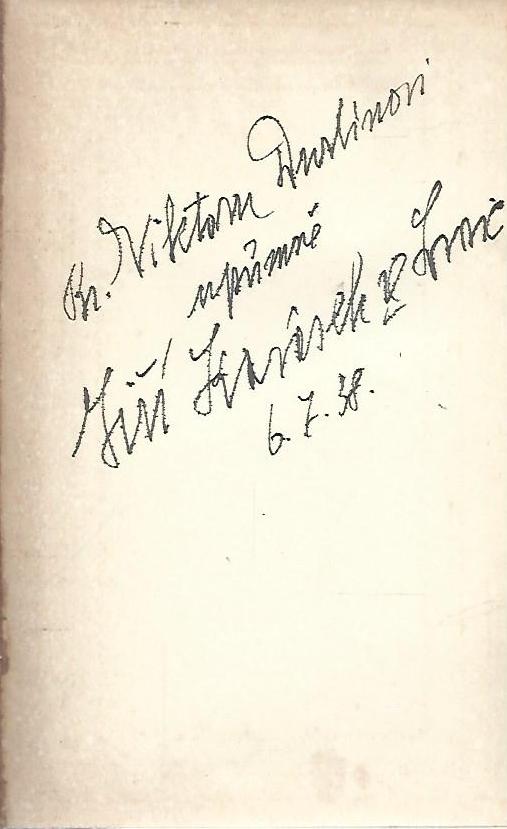 Br. Viktoru Durlinovi
upřímně
Jiří Karásek ze Lvovic
6. 7. 38.